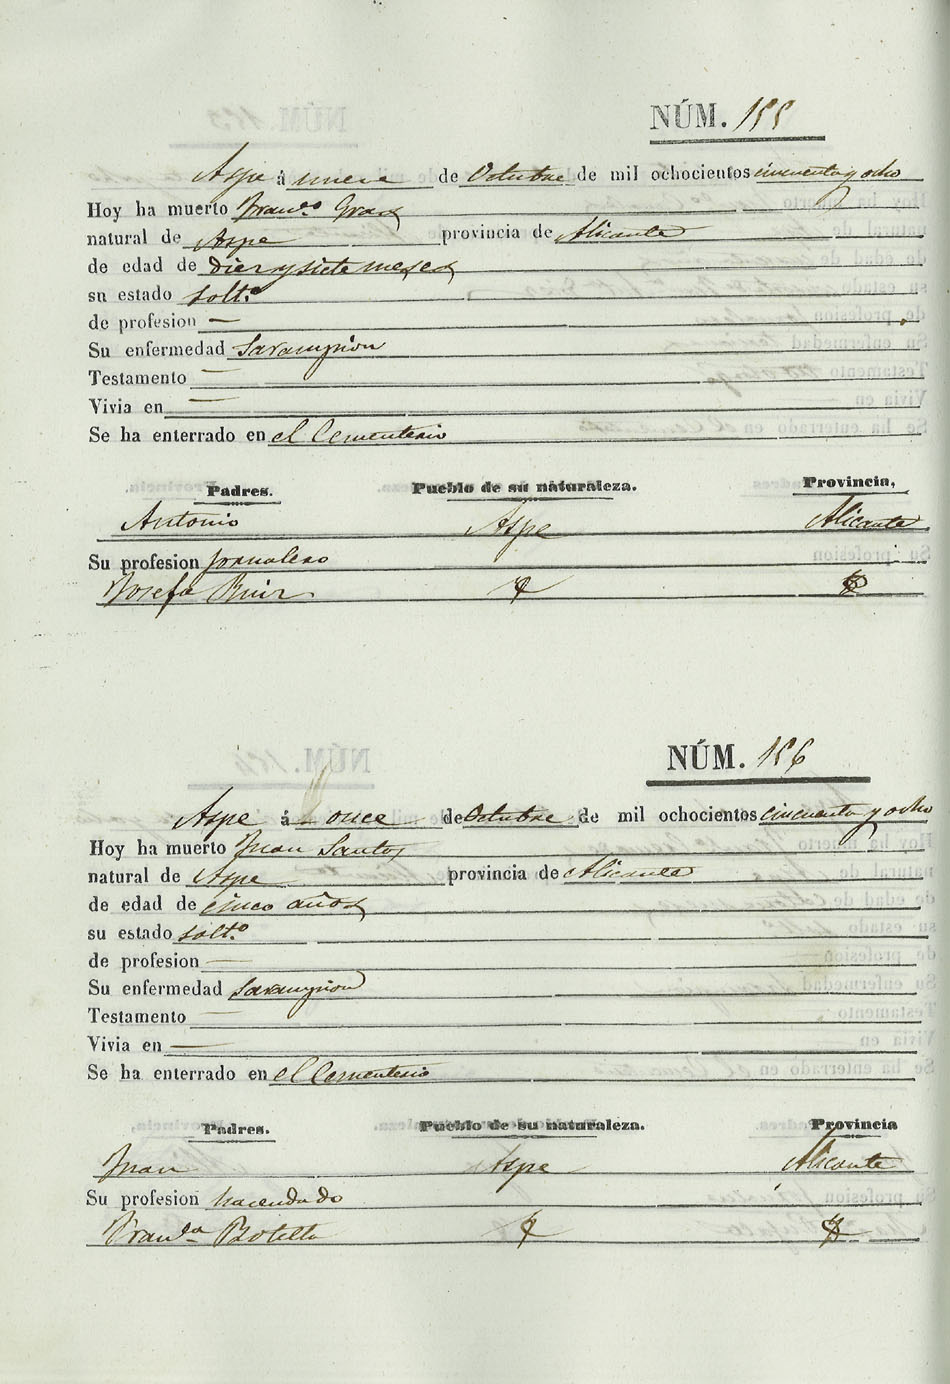 NÚM. 155
Aspe á nueve de Octubre de mil ochocientos cincuenta y ocho
Hoy ha muerto Franco. Gras
natural de Aspe provincia de Alicante
de edad de diez y siete meses
su estado solto.
de profesion —
Su enfermedad Sarampion
Testamento —
Vivia en —
Se ha enterrado en el Cementerio
Padres. Pueblo de su naturaleza. Provincia,
Antonio Aspe Alicante
Su profesion jornalero
Josefa Ruiz
NÚM. 156
Aspe á once de Octubre de mil ochocientos cincuenta y ocho
Hoy ha muerto Juan Santos
natural de Aspe provincia de Alicante
de edad de cinco años
su estado solto.
de profesion —
Su enfermedad Sarampion
Testamento —
Vivia en —
Se ha enterrado en el Cementerio
Padres. Pueblo de su naturaleza. Provincia
Juan Aspe Alicante
Su profesion hacendado
Franca. Botella